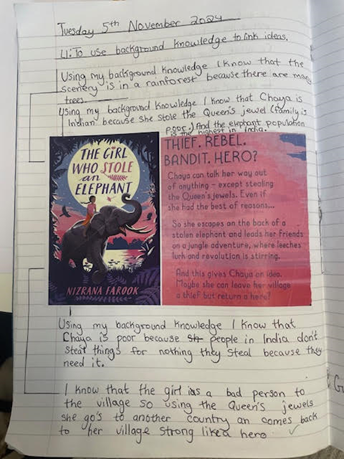 Tuesday 5th November 2024
LI: To use background knowledge to link ideas.
Using my background knowledge I know that the
scenery is in a rainforest because there are many
trees
Using my background knowledge I know that Chaya is
Indian because she stole the Queen's jewel (family is
poor) And the elephant population
is the highest in India.
THE GIRL
WHO STOLE
an
ELEPHANT
NIZRANA FAROOK
THIEF. REBEL.
BANDIT. HERO?
Chaya can talk her way out
of anything – except stealing
the Queen's jewels. Even if
she had the best of reasons...
So she escapes on the back of a
stolen elephant and leads her friends
on a jungle adventure, where leeches
lurk and revolution is stirring.
And this gives Chaya an idea.
Maybe she can leave her village
a thief but return a hero?
Using my background knowledge I know that
Chaya is poor because people in India don't
steal things for nothing they steal because they
need it.
I know that the girl is a bad person to
the village so using the Queen's jewels
she go's to another country an comes back
to her village strong like a hero